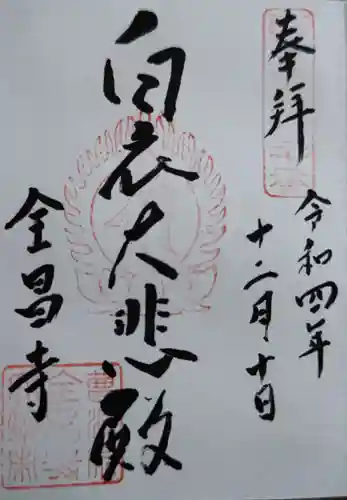 奉拜
令和四年
十二月十日
白衣大悲殿
全昌寺